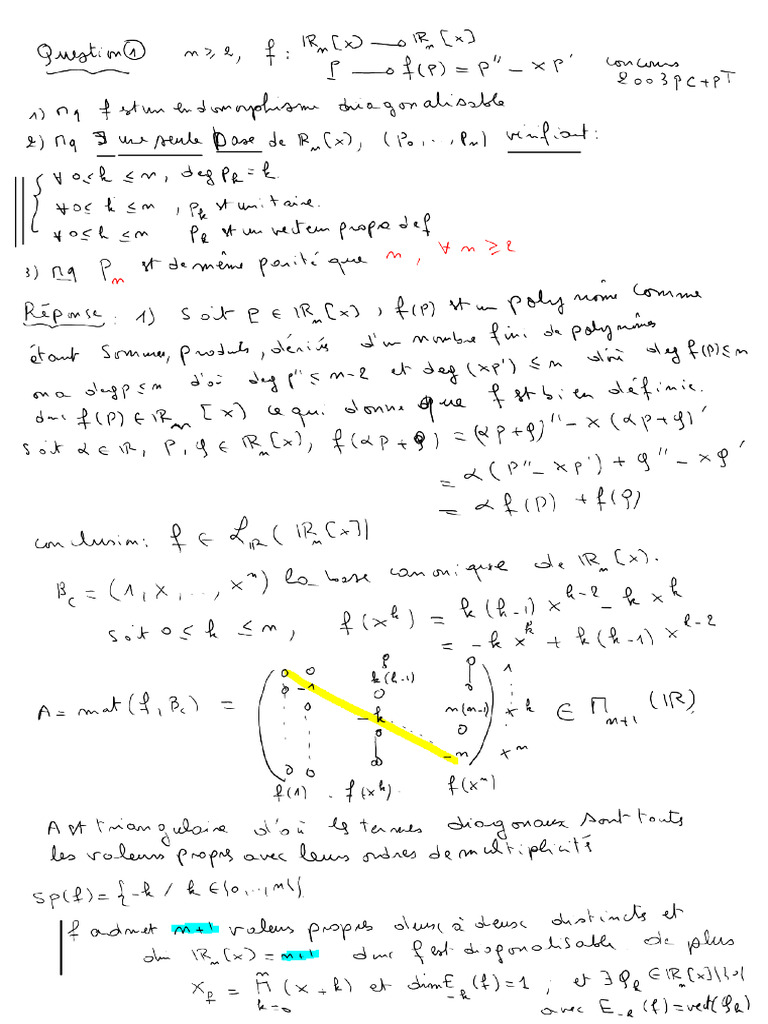 Question ① n ≥ 2, f : ℝₙ[x] → ℝₙ[x]
P → f(P) = P'' − xP' concours 2003 PC+PT
1) Mq f est un endomorphisme diagonalisable
2) Mq ∃ une seule base de ℝₙ[x], (P₀, .., Pₙ) vérifiant :
∀ 0 ≤ k ≤ n, deg Pₖ = k.
∀ 0 ≤ k ≤ n, Pₖ est unitaire.
∀ 0 ≤ k ≤ n Pₖ est un vecteur propre de f
3) Mq Pₙ est de même parité que n, ∀ n ≥ 2
Réponse : 1) Soit P ∈ ℝₙ[x], f(P) est un polynôme comme
étant sommes, produits, dérivés d'un nombre fini de polynômes
on a deg P ≤ n d'où deg P'' ≤ n−2 et deg(xP') ≤ n d'où deg f(P) ≤ n
donc f(P) ∈ ℝₙ[x] ce qui donne que f est bien définie.
Soit α ∈ ℝ, P, Q ∈ ℝₙ[x], f(αP + Q) = (αP + Q)'' − x(αP + Q)'
= α(P'' − xP') + Q'' − xQ'
= α f(P) + f(Q)
conclusion : f ∈ ℒ_ℝ(ℝₙ[x])
B_c = (1, x, .., xⁿ) la base canonique de ℝₙ[x].
Soit 0 ≤ k ≤ n, f(xᵏ) = k(k−1) xᵏ⁻² − k xᵏ
= −k xᵏ + k(k−1) xᵏ⁻²
0 0 0 0 1
0 −1 k(k−1)
0 0
A = mat(f, B_c) = −k n(n−1) xᵏ ∈ Mₙ₊₁(ℝ)
0 0
0 0 0 −n xⁿ
f(1) . f(xᵏ) . f(xⁿ)
A est triangulaire d'où les termes diagonaux sont touts
les valeurs propres avec leurs ordres de multiplicités
Sp(f) = {−k / k ∈ {0, .., n}}
f admet n+1 valeurs propres deux à deux distincts et
dim ℝₙ[x] = n+1 donc f est diagonalisable. de plus
X_f = ∏ₖ₌₀ⁿ (x + k) et dim E₋ₖ(f) = 1 ; et ∃ Qₖ ∈ ℝₙ[x]\{0}
avec E₋ₖ(f) = vect(Qₖ)